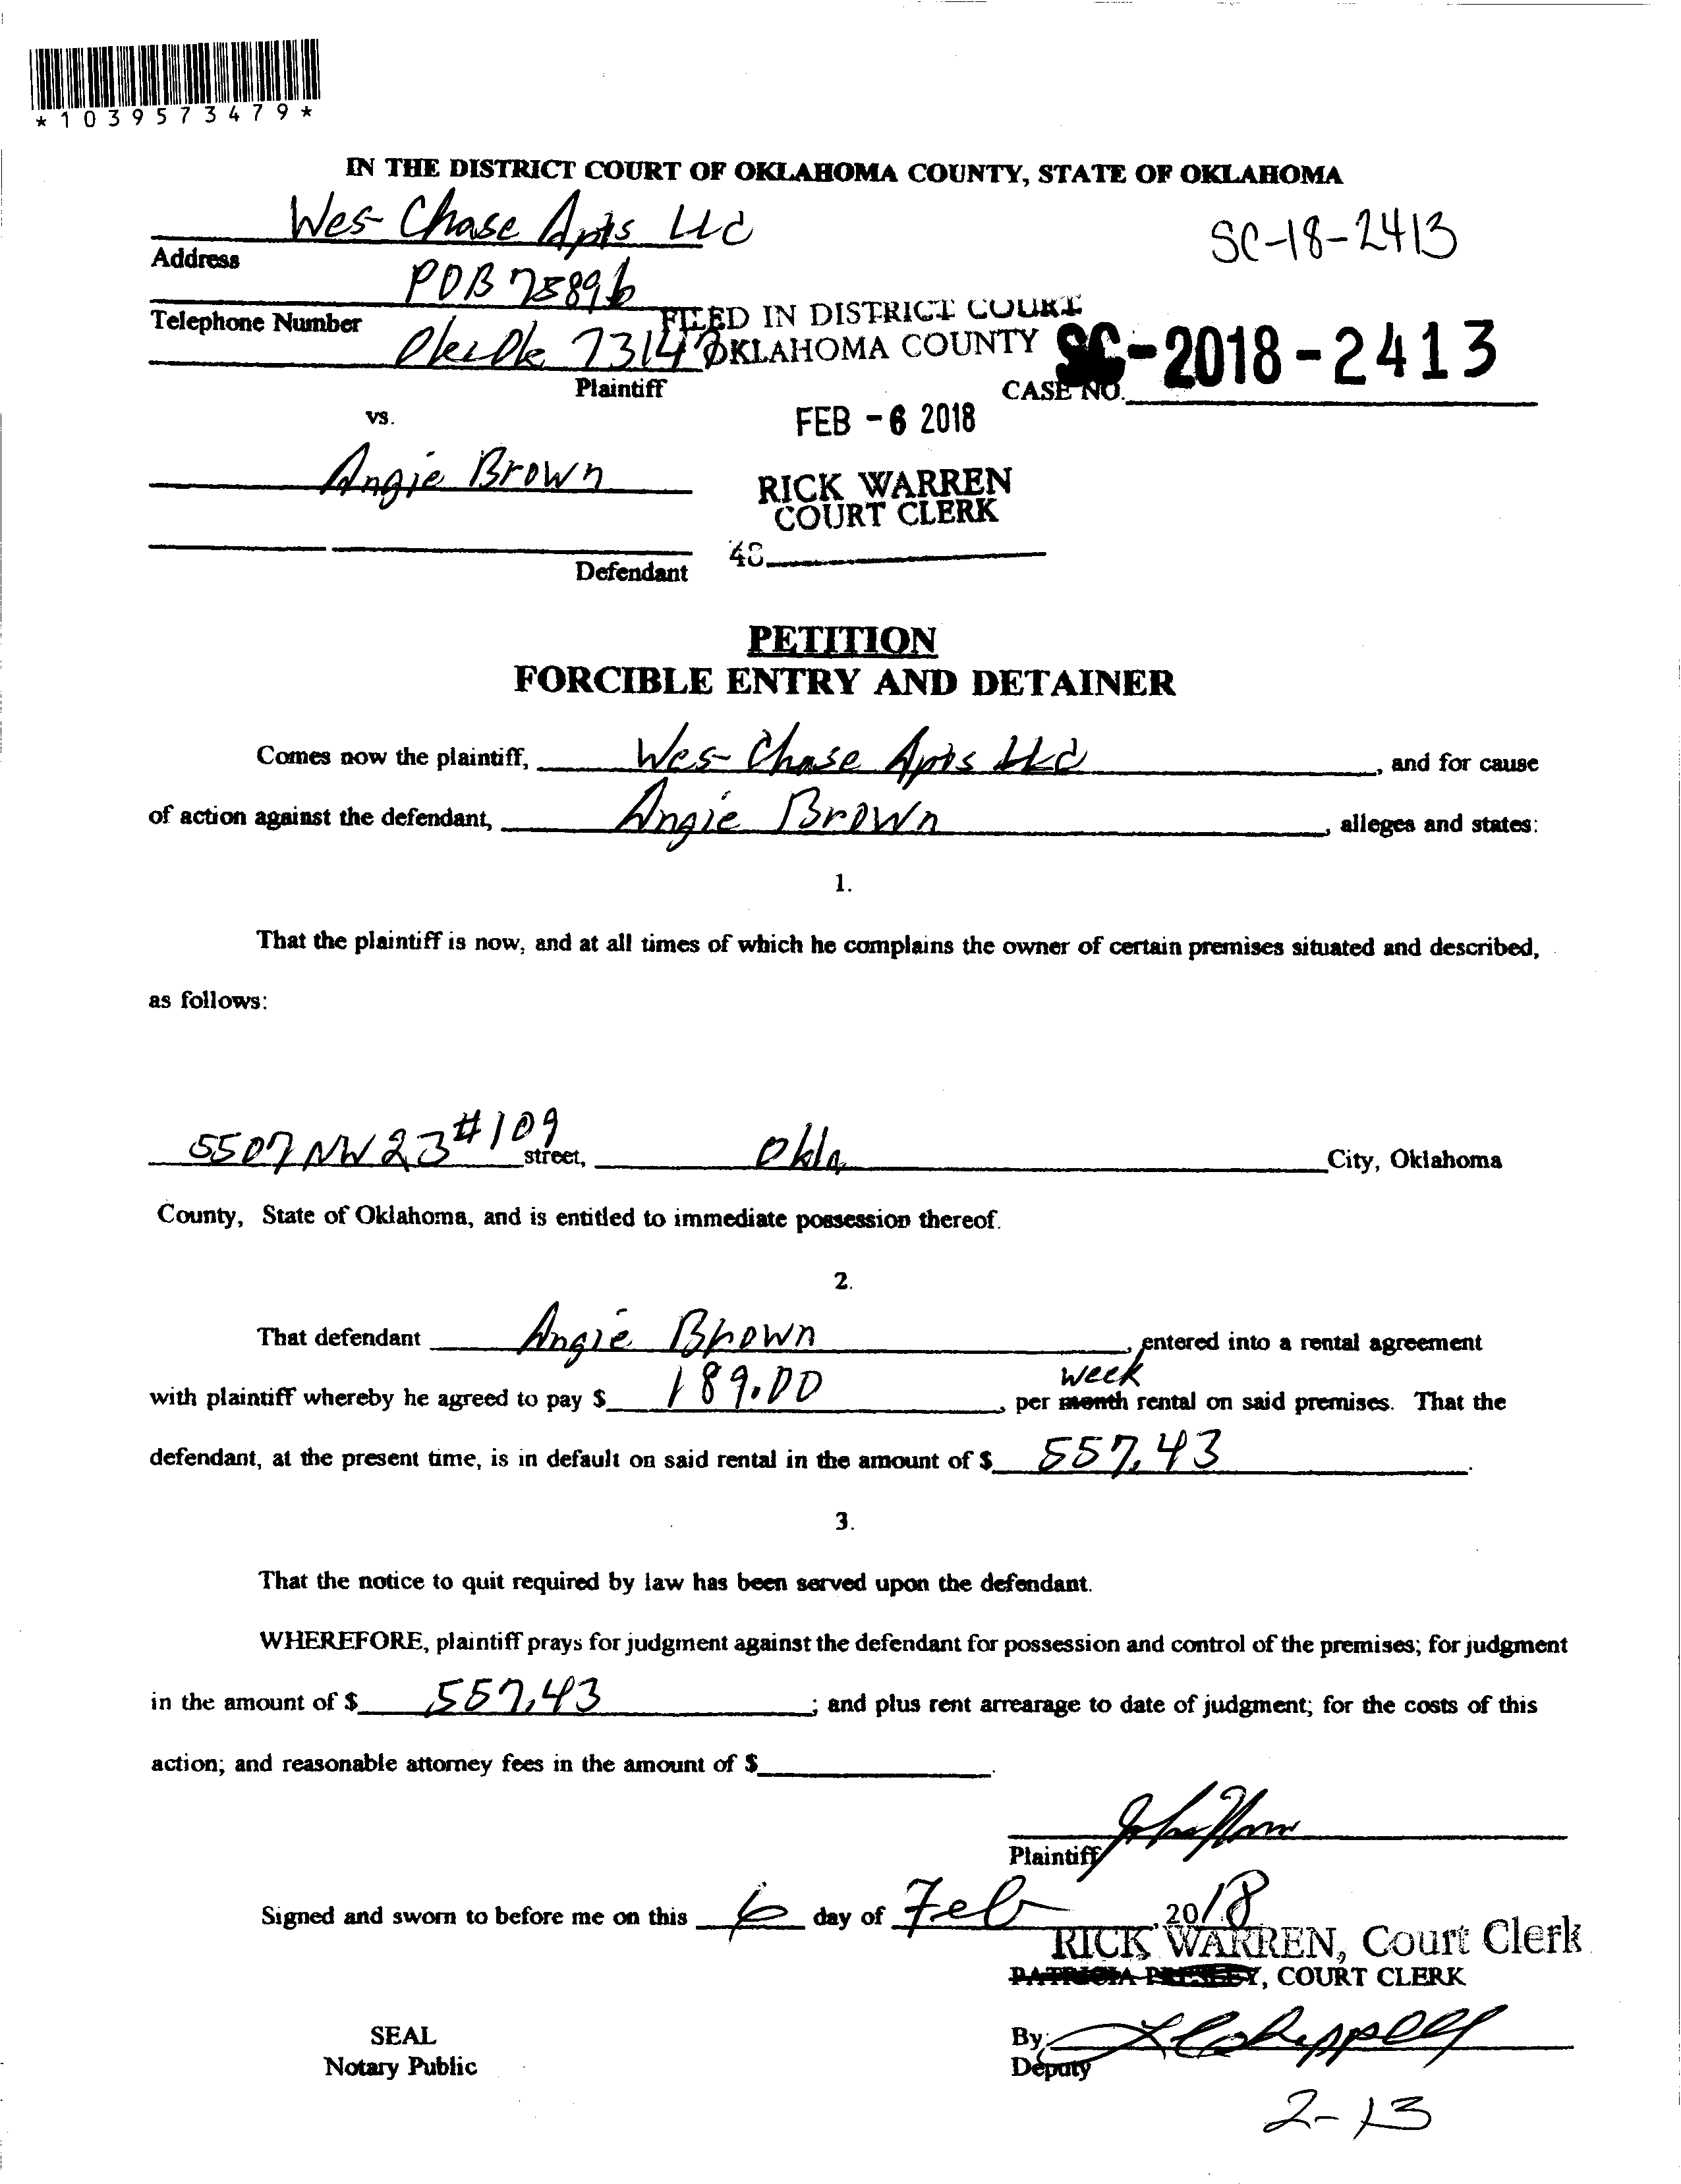 *1039573479*
IN THE DISTRICT COURT OF OKLAHOMA COUNTY, STATE OF OKLAHOMA
Wes-Chase Apts LLC
SC-18-2413
Address
POB 75896
Telephone Number
FILED IN DISTRICT COURT
OKLAHOMA COUNTY
Okc Ok 73147
SC-2018-2413
Plaintiff
CASE NO.
vs.
FEB -6 2018
Angie Brown
RICK WARREN
COURT CLERK
Defendant
PETITION
FORCIBLE ENTRY AND DETAINER
Comes now the plaintiff, Wes-Chase Apts, and for cause
of action against the defendant, Angie Brown, alleges and states:
1.
That the plaintiff is now, and at all times of which he complains the owner of certain premises situated and described,
as follows:
5507 NW 23 #109 street, Okla City, Oklahoma
County, State of Oklahoma, and is entitled to immediate possession thereof.
2.
That defendant Angie Brown, entered into a rental agreement
week
with plaintiff whereby he agreed to pay $ 189.00, per month rental on said premises. That the
defendant, at the present time, is in default on said rental in the amount of $ 557.43.
3.
That the notice to quit required by law has been served upon the defendant.
WHEREFORE, plaintiff prays for judgment against the defendant for possession and control of the premises; for judgment
in the amount of $ 557.43; and plus rent arrearage to date of judgment; for the costs of this
action; and reasonable attorney fees in the amount of $.
Plaintiff
Signed and sworn to before me on this 6 day of Feb, 2018
RICK WARREN, Court Clerk
PATRICIA PRESLEY, COURT CLERK
SEAL
By:
Notary Public
Deputy
2-13